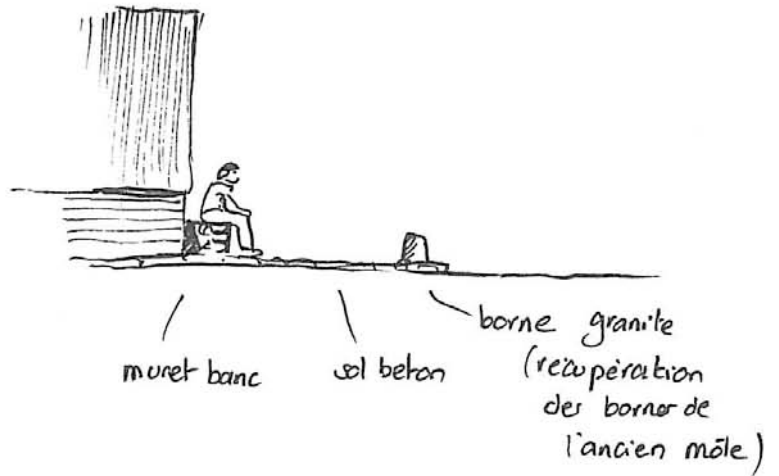 muret banc
sol beton
borne granite
(récupération
des bornes de
l'ancien môle)